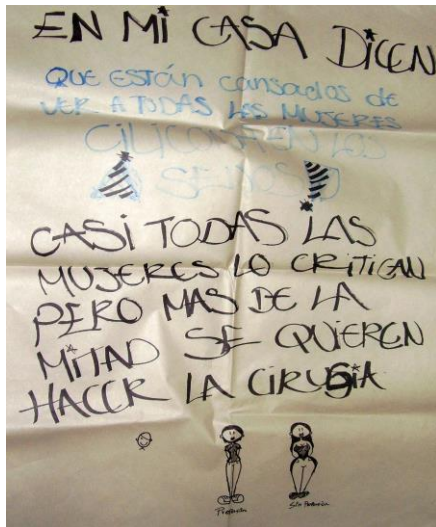 EN MI CASA DICEN
QUE ESTÁN cansados de
VER A TODAS LAS MUJERES
CILICONA EN LOS
SENOS
CASI TODAS LAS
MUJERES LO CRITICAN
PERO MAS DE LA
MITAD SE QUIEREN
HACER LA CIRUGIA